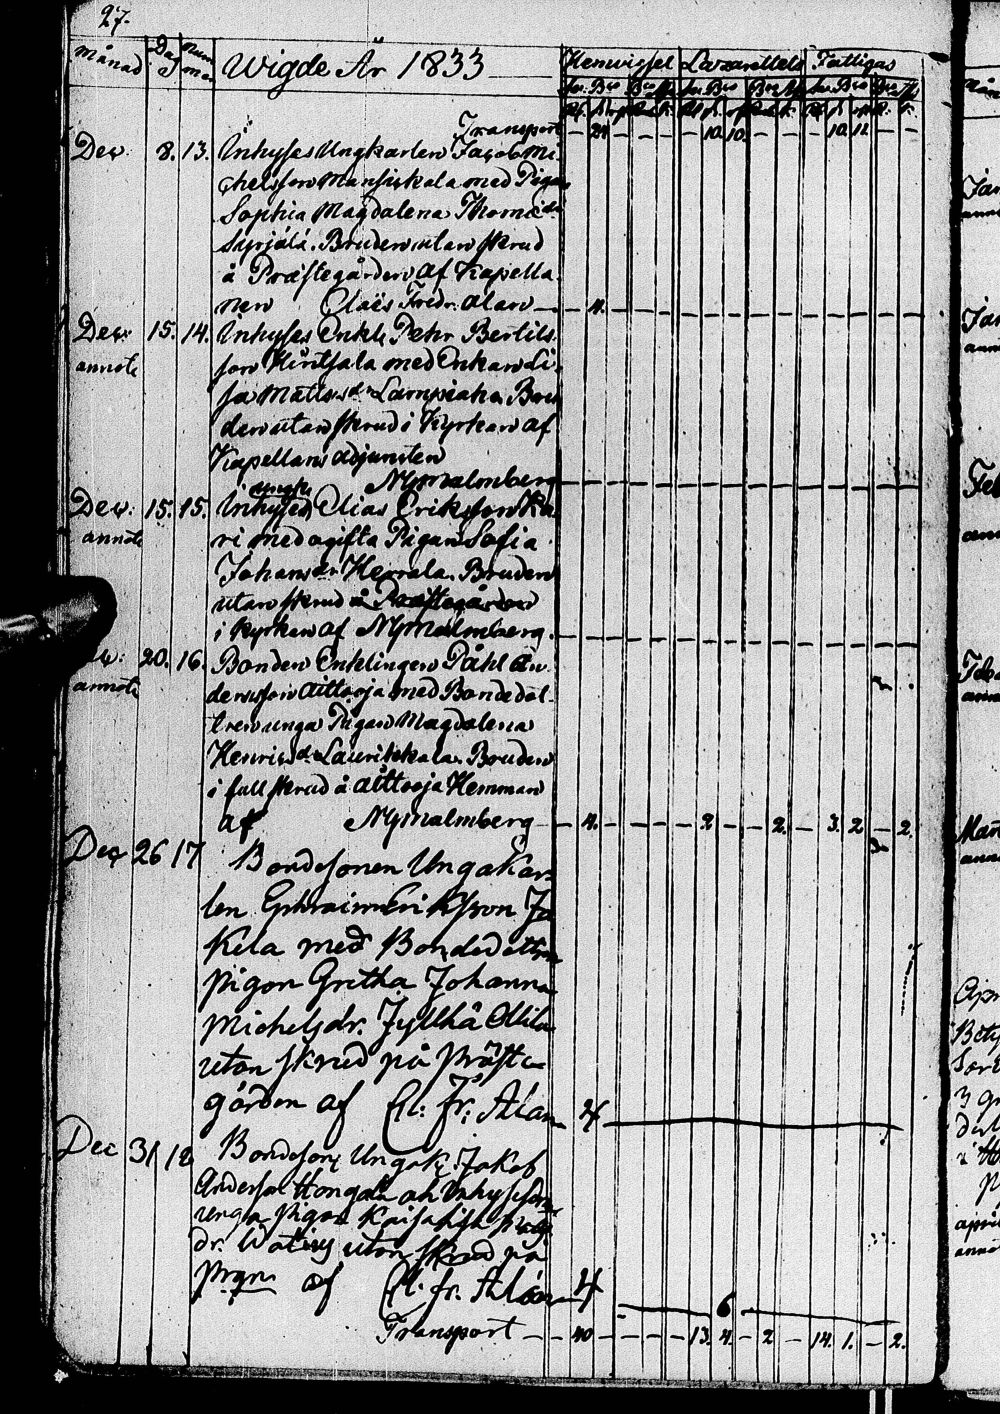 27.
Månad Dag Num Wigde År 1833 Hemvigsel Lazarettets Fattigas
Transport — 24 — — — — 10 10 — — — 10 11 — —
Dec. 8. 13. Inhyses Ungkarlen Jacob Mi-
chelsson Mansikala med Pigan
Sophia Magdalena Thomæ dr
Syrjälä. Bruden utan skrud
å Præstegården af Kapella-
nen Claës Fredr. Alan — 4.
Dec. 15. 14. Inhyses Enkl. Pehr Bertils-
annote son Hirtsala med Enkan Li-
sa Matts dr Bru-
den utan skrud i Kyrkan af
Kapellans Adjuncten
Nymalmberg
Dec. 15. 15. Inhyses ungk. Elias Eriksson Ka-
annote ri med ogifta Pigan Sofia
Johans dr Herrala. Bruden
utan skrud å Præstegården
i Kyrkan af Nymalmberg.
20. 16. Bonden Enklingen Påhl An-
annote dersson Aittooja med Bondedot-
tren unga Pigan Magdalena
Henrics dr Bruden
i full skrud å Aittooja Hemman
af Nymalmberg — 4. — 2 — 2. — 3. 2 — 2.
Dec 26 17 Bondesonen Unga Kar-
len Ephraim Eriksson
med Bondedottren
pigan Gretha Johanna
Michelsdr.
utan skrud på Präste-
gården af Cl: Fr: Alan 4
Dec 31 18 Bondeson Unga K: Jakob
Anderson Hongala och Inhyses
unga pigan Kaisa
dr. utan skrud på
Prgn af Cl. fr. Alan 4
6
Transport — — 40 — — — — 13. 4. — 2 — 14. 1. — 2.